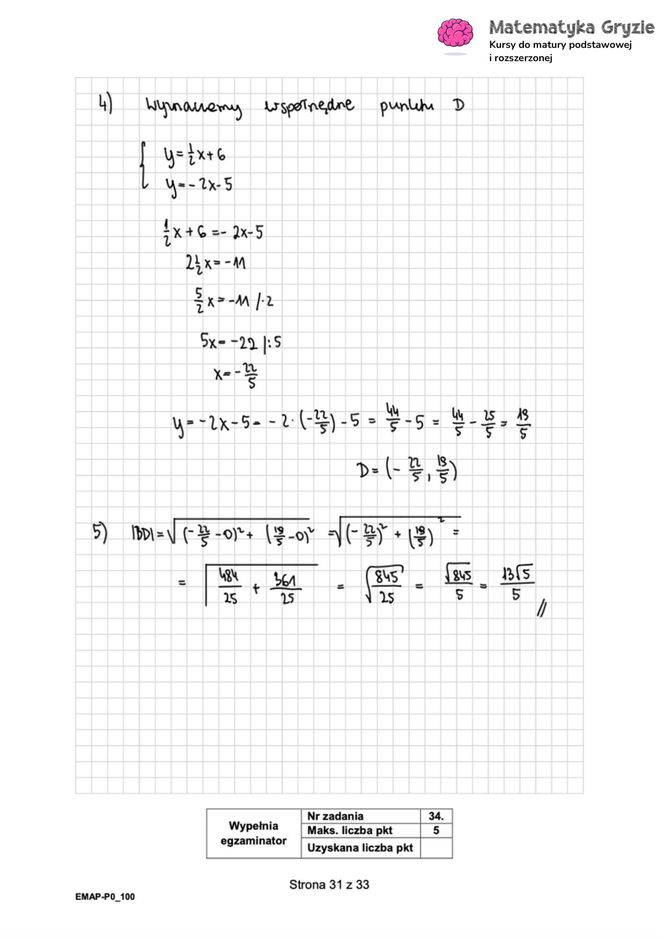 Matematyka Gryzie
Kursy do matury podstawowej
i rozszerzonej
4) Wyznaczamy współrzędne punktu D
{ y = 1/2 x + 6
y = - 2x - 5
1/2 x + 6 = - 2x - 5
2 1/2 x = - 11
5/2 x = - 11 / · 2
5x = - 22 | : 5
x = - 22/5
y = - 2x - 5 = - 2 · (- 22/5) - 5 = 44/5 - 5 = 44/5 - 25/5 = 19/5
D = (- 22/5 , 19/5)
5) |BD| = √((- 22/5 - 0)² + (19/5 - 0)²) = √((- 22/5)² + (19/5)²) =
= √(484/25 + 361/25) = √(845/25) = √845/5 = 13√5/5 //
Wypełnia
egzaminator
Nr zadania 34.
Maks. liczba pkt 5
Uzyskana liczba pkt
Strona 31 z 33
EMAP-P0_100